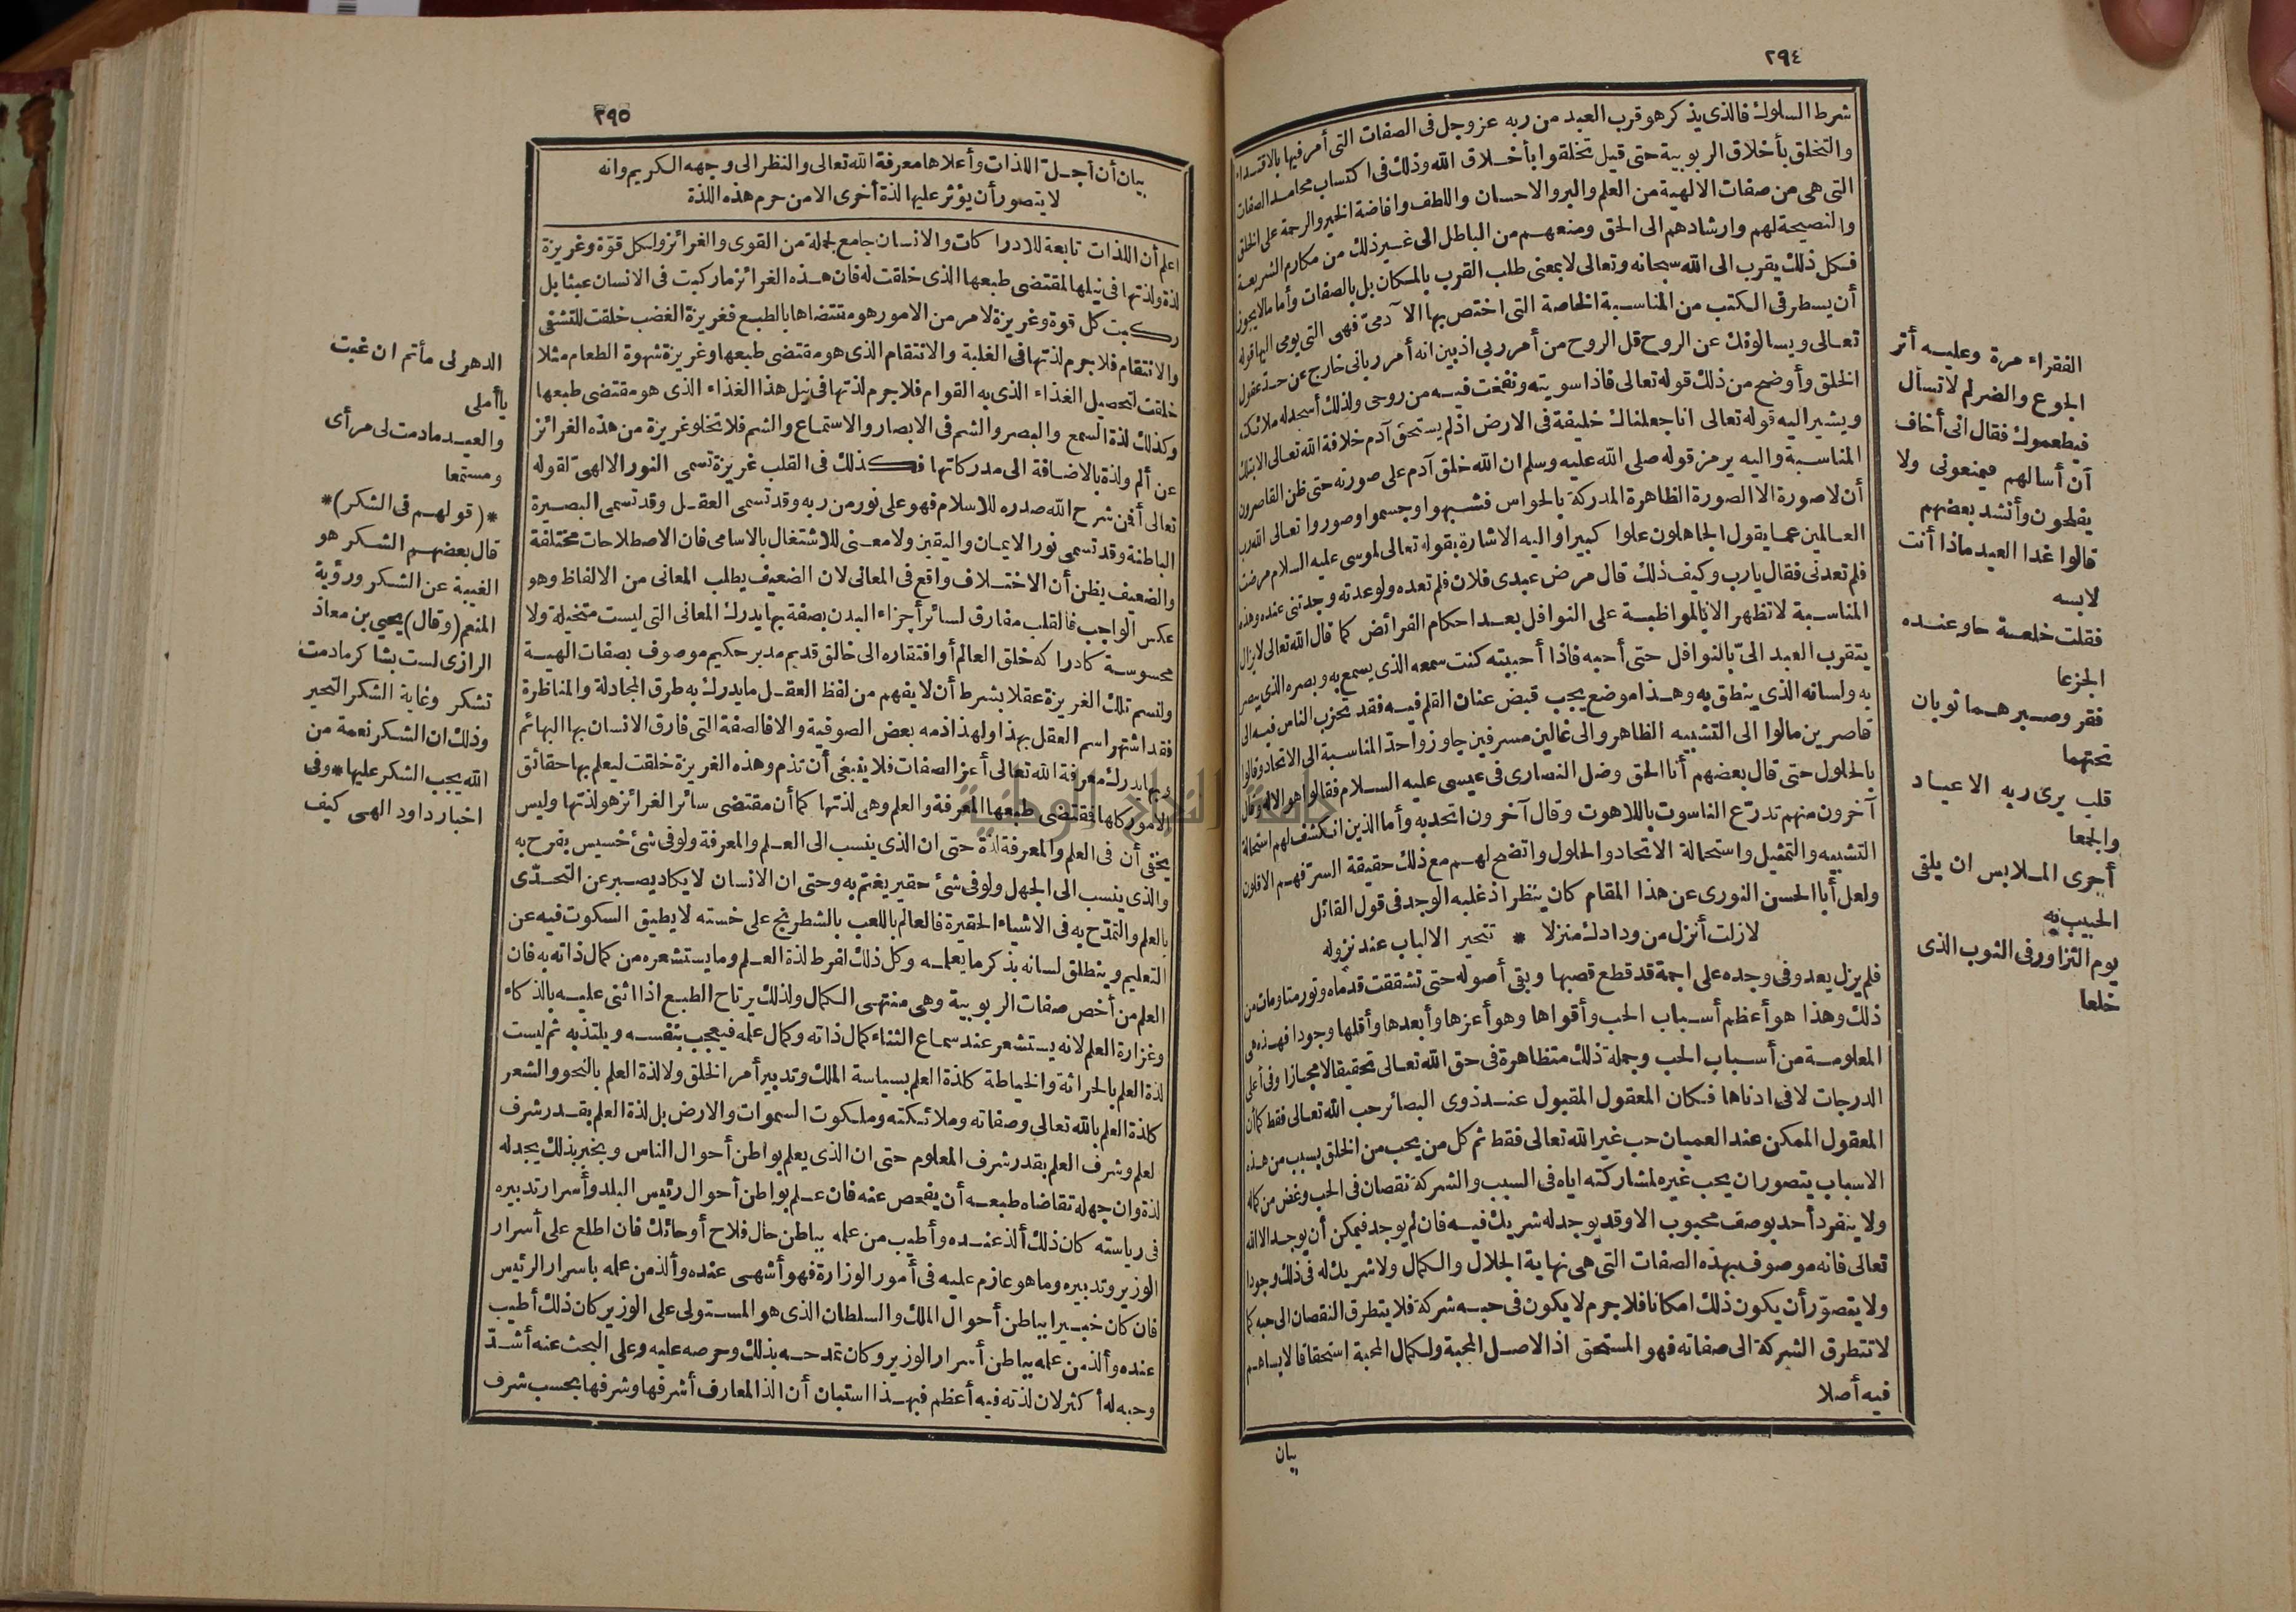 ٢٩٤
شرط السلوك فالذى يذكر هو قرب العبد من ربه عز وجل فى الصفات التى أمر فيها بالاقتداء
والتخلق بأخلاق الربوبية حتى قيل تخلقوا بأخلاق الله وذلك فى اكتساب محامد الصفات
التى هى من صفات الالهية من العلم والبر والاحسان واللطف وافاضة الخير والرحمة على الخلق
والنصيحة لهم وارشادهم الى الحق ومنعهم من الباطل الى غير ذلك من مكارم الشريعة
فكل ذلك يقرب الى الله سبحانه وتعالى لا بمعنى طلب القرب بالمكان بل بالصفات وأما ما لا يجوز
أن يسطر فى الكتب من المناسبة الخاصة التى اختص بها الآدمىّ فهى التى يومى اليها قوله
تعالى ويسألونك عن الروح قل الروح من أمر ربى اذ بين انه أمر ربانى خارج عن حد عقول
الخلق وأوضح من ذلك قوله تعالى فاذا سويته ونفخت فيه من روحى ولذلك أسجد له ملائكته
ويشير اليه قوله تعالى انا جعلناك خليفة فى الارض اذ لم يستحق آدم خلافة الله تعالى الا بتلك
المناسبة واليه يرمز قوله صلى الله عليه وسلم ان الله خلق آدم على صورته حتى ظن القاصرون
أن لا صورة الا الصورة الظاهرة المدركة بالحواس فشبهوا وجسموا وصوروا تعالى الله رب
العالمين عما يقول الجاهلون علوا كبيرا واليه الاشارة بقوله تعالى لموسى عليه السلام مرضت
فلم تعدنى فقال يارب وكيف ذلك قال مرض عبدى فلان فلم تعده ولو عدته وجدتنى عنده وهذه
المناسبة لا تظهر الا بالمواظبة على النوافل بعد احكام الفرائض كما قال الله تعالى لا يزال
يتقرب العبد الىّ بالنوافل حتى أحبه فاذا أحببته كنت سمعه الذى يسمع به وبصره الذى يبصر
به ولسانه الذى ينطق به وهذا موضع يجب قبض عنان القلم فيه فقد تحزب الناس فيه الى
قاصرين مالوا الى التشبيه الظاهر والى غالين مسرفين جاوزوا حدّ المناسبة الى الاتحاد وقالوا
بالحلول حتى قال بعضهم أنا الحق وضل النصارى فى عيسى عليه السلام فقالوا هو الاله وقال
آخرون منهم تدرّع الناسوت باللاهوت وقال آخرون اتحد به وأما الذين انكشف لهم استحالة
التشبيه والتمثيل واستحالة الاتحاد والحلول واتضح لهم مع ذلك حقيقة السرّ فهم الاقلون
ولعل أبا الحسن النورى عن هذا المقام كان ينظر اذ غلبه الوجد فى قول القائل
لازلت أنزل من ودادك منزلا * تتحير الالباب عند نزوله
فلم يزل يعدو فى وجده على اجمة قد قطع قصبها وبقى أصوله حتى تشققت قدماه وتورمتا ومات من
ذلك وهذا هو أعظم أسباب الحب وأقواها وهو أعزها وأبعدها وأقلها وجودا فهذه هى
المعلومة من أسباب الحب وجملة ذلك متظاهرة فى حق الله تعالى تحقيقا لا مجازا وفى أعلى
الدرجات لا فى ادناها فكان المعقول المقبول عند ذوى البصائر حب الله تعالى فقط كما أن
المعقول الممكن عند العميان حب غير الله تعالى فقط ثم كل من يحب من الخلق بسبب من هذه
الاسباب يتصور ان يحب غيره لمشاركته اياه فى السبب والشركة نقصان فى الحب وغض من كماله
ولا ينفرد أحد بوصف محبوب الا وقد يوجد له شريك فيه فان لم يوجد فيمكن أن يوجد الا الله
تعالى فانه موصوف بهذه الصفات التى هى نهاية الجلال والكمال ولا شريك له فى ذلك وجودا
ولا يتصوّر أن يكون ذلك امكانا فلا جرم لا يكون فى حبه شركة فلا يتطرق النقصان الى حبه كما
لا تتطرق الشركة الى صفاته فهو المستحق اذ الاصل المحبة ولكمال المحبة استحقاقا لا يساهم
فيه أصلا
بيان
الفقراء مرة وعليه أثر
الجوع والضر لم لا تسأل
فيطعموك فقال انى أخاف
أن أسالهم فيمنعونى ولا
يفلحون وأنشد بعضهم
قالوا غدا العيد ماذا أنت
لابسه
فقلت خلعة ساق عنده
الجزعا
فقر وصبر هما ثوبان
تحتهما
قلب يرى ربه الاعياد
والجمعا
أحرى الملابس ان يلقى
الحبيب به
يوم التزاور فى الثوب الذى
خلعا
٢٩٥
بيان أن أجلّ اللذات وأعلاها معرفة الله تعالى والنظر الى وجهه الكريم وانه
لا يتصور أن يؤثر عليها لذة أخرى الا من حرم هذه اللذة
اعلم أن اللذات تابعة للادراكات والانسان جامع لجملة من القوى والغرائز ولكل قوّة وغريزة
لذة ولذتها فى نيلها لمقتضى طبعها الذى خلقت له فان هذه الغرائز ما ركبت فى الانسان عبثا بل
ركبت كل قوة وغريزة لامر من الامور هو مقتضاها بالطبع فغريزة الغضب خلقت للتشفى
والانتقام فلا جرم لذتها فى الغلبة والانتقام الذى هو مقتضى طبعها وغريزة شهوة الطعام مثلا
خلقت لتحصيل الغذاء الذى به القوام فلا جرم لذتها فى نيل هذا الغذاء الذى هو مقتضى طبعها
وكذلك لذة السمع والبصر والشم فى الابصار والاستماع والشم فلا تخلو غريزة من هذه الغرائز
عن ألم ولذة بالاضافة الى مدركاتها فكذلك فى القلب غريزة تسمى النور الالهىّ لقوله
تعالى أفمن شرح الله صدره للاسلام فهو على نور من ربه وقد تسمى العقل وقد تسمى البصيرة
الباطنة وقد تسمى نور الايمان واليقين ولا معنى للاشتغال بالاسامى فان الاصطلاحات مختلفة
والضعيف يظن أن الاختلاف واقع فى المعانى لان الضعيف يطلب المعانى من الالفاظ وهو
عكس الواجب فالقلب مفارق لسائر أجزاء البدن بصفة بها يدرك المعانى التى ليست متخيلة ولا
محسوسة كادراكه خلق العالم أو افتقاره الى خالق قديم مدبر حكيم موصوف بصفات الهية
ولنسم تلك الغريزة عقلا بشرط أن لا يفهم من لفظ العقل ما يدرك به طرق المجادلة والمناظرة
فقد اشتهر اسم العقل بهذا ولهذا ذمه بعض الصوفية والا فالصفة التى فارق الانسان بها البهائم
وبها يدرك معرفة الله تعالى أعز الصفات فلا ينبغى أن تذم وهذه الغريزة خلقت ليعلم بها حقائق
الامور كلها فمقتضى طبعها المعرفة والعلم وهى لذتها كما أن مقتضى سائر الغرائز هو لذتها وليس
يخفى أن فى العلم والمعرفة لذة حتى ان الذى ينسب الى العلم والمعرفة ولو فى شئ خسيس يفرح به
والذى ينسب الى الجهل ولو فى شئ حقير يغتم به وحتى ان الانسان لا يكاد يصبر عن التحدّى
بالعلم والتمدّح به فى الاشياء الحقيرة فالعالم باللعب بالشطرنج على خسته لا يطيق السكوت فيه عن
التعليم وينطلق لسانه بذكر ما يعلمه وكل ذلك لفرط لذة العلم وما يستشعره من كمال ذاته به فان
العلم من أخص صفات الربوبية وهى منتهى الكمال ولذلك يرتاح الطبع اذا اثنى عليه بالذكاء
وغزارة العلم لانه يستشعر عند سماع الثناء كمال ذاته وكمال علمه فيعجب بنفسه ويلتذ به ثم ليست
لذة العلم بالحراثة والخياطة كلذة العلم بسياسة الملك وتدبير أمر الخلق ولا لذة العلم بالنحو والشعر
كلذة العلم بالله تعالى وصفاته وملائكته وملكوت السموات والارض بل لذة العلم بقدر شرف
لعلم وشرف العلم بقدر شرف المعلوم حتى ان الذى يعلم بواطن أحوال الناس ويخبر بذلك يجد له
لذة وان جهله تقاضاه طبعه أن يفحص عنه فان علم بواطن أحوال رئيس البلد وأسرار تدبيره
فى رياسته كان ذلك ألذ عنده وأطيب من علمه بباطن حال فلاح أو حائك فان اطلع على أسرار
الوزير وتدبيره وما هو عازم عليه فى أمور الوزارة فهو أشهى عنده وألذ من علمه باسرار الرئيس
فان كان خبيرا بباطن أحوال الملك والسلطان الذى هو المستولى على الوزير كان ذلك أطيب
عنده وألذ من علمه بباطن أسرار الوزير وكان تمدحه بذلك وحرصه عليه وعلى البحث عنه أشدّ
وحبه له أكثر لان لذته فيه أعظم فبهذا استبان أن الذ المعارف أشرفها وشرفها بحسب شرف
الدهر لى مأتم ان غبت
يا أملى
والعيد مادمت لى مرأى
ومستمعا
*(قولهم فى الشكر)*
قال بعضهم الشكر هو
الغيبة عن الشكر ورؤية
المنعم (وقال) يحيى بن معاذ
الرازى لست بشاكر مادمت
تشكر وغاية الشكر التحير
وذلك ان الشكر نعمة من
الله يجب الشكر عليها * وفى
اخبار داود الهى كيف
جامعة النجاح الوطنية